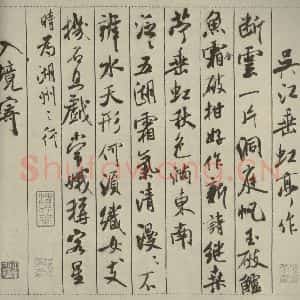 吳江垂虹亭作
斷雲一片洞庭帆玉破鱸
魚霜破柑好作新詩繼桑
苧垂虹秋色滿東南
泛〻五湖霜氣清漫〻不
辨水天形何須織女支
機石且戲常娥稱客星
時為湖州之行
入境寄
Shufawang.CN